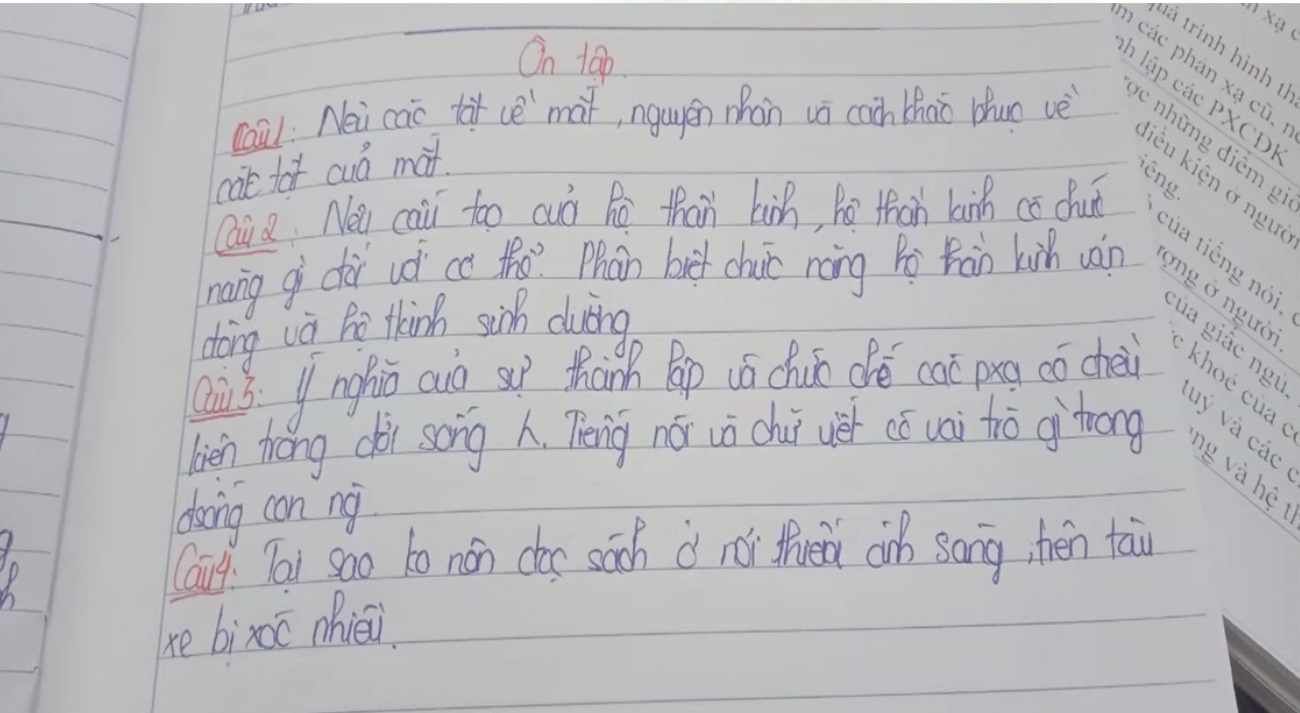 Ôn tập
Câu1: Nêu các tật về mắt, nguyên nhân và cách khắc phục về
các tật của mắt.
Câu 2: Nêu cấu tạo của hệ thần kinh, hệ thần kinh có chức
năng gì đối với cơ thể. Phân biệt chức năng hệ thần kinh vận
động và hệ tkinh sinh dưỡng
Câu 3: Ý nghĩa của sự thành lập và chức chế các pxạ có đkiều
kiện trong đời sống h. Tiếng nói và chữ viết có vai trò gì trong
đsống con ng
Câu 4: Tại sao ko nên đọc sách ở nơi thiếu ánh sáng, trên tàu
xe bị xóc nhiều.
uá trình hình thà
m các phản xạ cũ, nơ
nh lập các PXCĐK
ợc những điểm giố
điều kiện ở người
iêng.
của tiếng nói, c
ượng ở người.
của giấc ngủ,
c khoẻ của cơ
tuý và các c
ng và hệ th